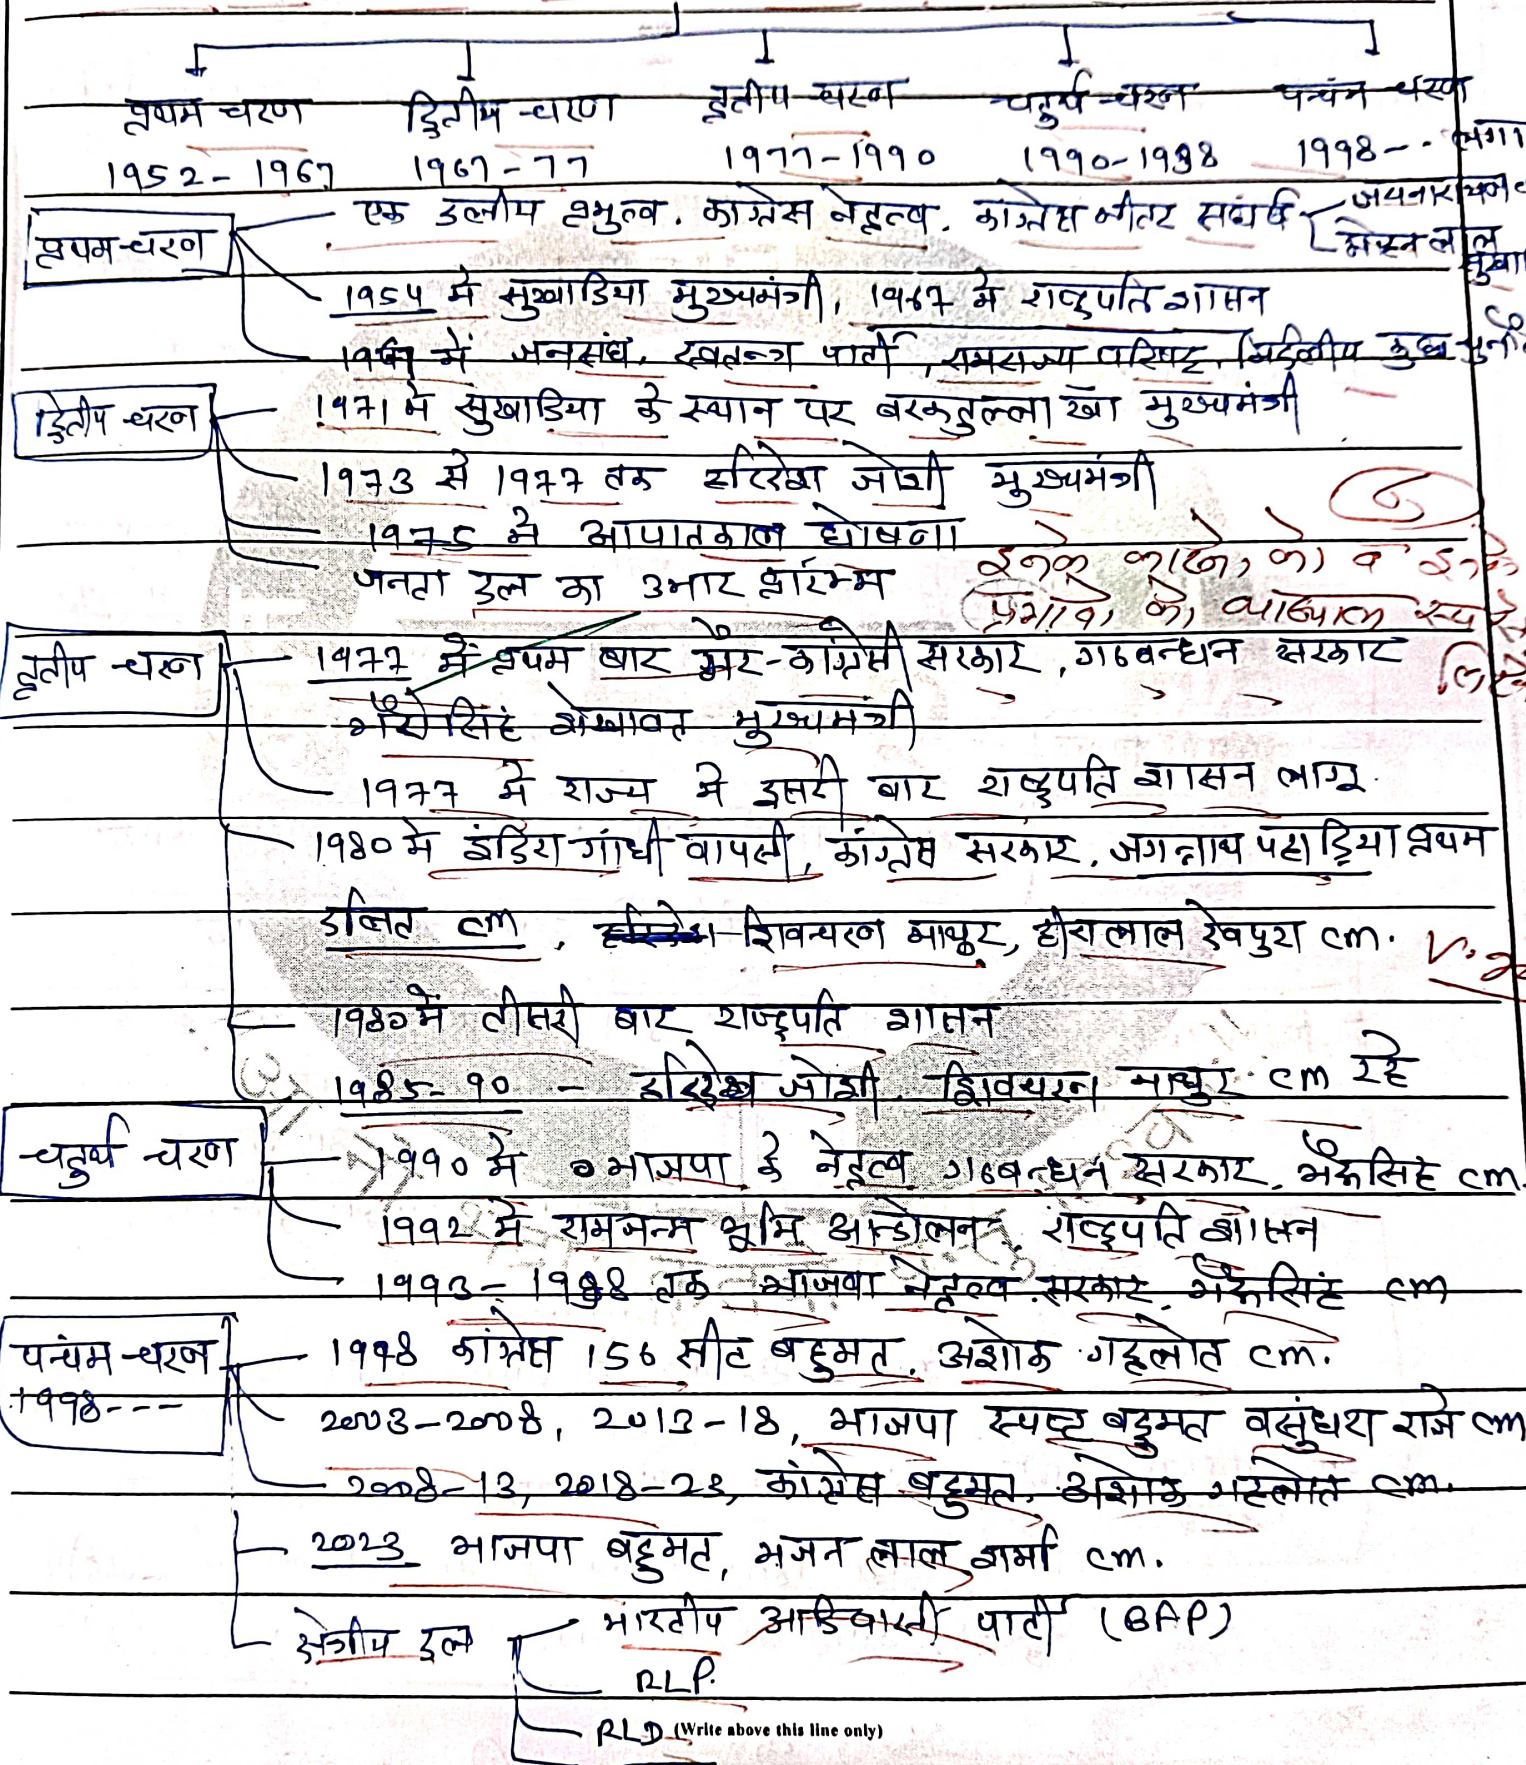 प्रथम चरण द्वितीय चरण तृतीय चरण चतुर्थ चरण पन्चंम चरण
1952-1967 1967-77 1977-1990 1990-1998 1998--
प्रथम चरण
एक दलीय प्रभुत्व. कांग्रेस नेतृत्व. कांग्रेस भीतर संघर्ष
जयनारायण
मोहन लाल
सुखा
1954 में सुखाडिया मुख्यमंत्री, 1967 में राष्ट्रपति शासन
1967 में जनसंघ, स्वतन्त्र पार्टी, रामराज्य परिषद, निर्दलीय कुछ
द्वितीय चरण
1971 में सुखाडिया के स्थान पर बरकतुल्ला खां मुख्यमंत्री
1973 से 1977 तक हरिदेश जोशी मुख्यमंत्री
1975 में आपातकाल घोषणा
जनता दल का उभार प्रारम्भ
इनके कारणों को व इनके
प्रभावों को
तृतीय चरण
1977 में प्रथम बार गैर-कांग्रेसी सरकार, गठबन्धन सरकार
भैंरोसिंह शेखावत मुख्यमंत्री
1977 में राज्य में दूसरी बार राष्ट्रपति शासन लागू.
1980 में इंदिरा गांधी वापसी, कांग्रेस सरकार, जगन्नाथ पहाड़िया प्रथम
दलित cm, शिवचरण माथुर, हीरालाल देवपुरा cm.
1980 में तीसरी बार राष्ट्रपति शासन
1985-90 - हरिदेव जोशी, शिवचरन माथुर cm रहे
चतुर्थ चरण
1990 में भाजपा के नेतृत्व गठबन्धन सरकार, भैंरूसिंह cm.
1992 में रामजन्म भूमि आन्दोलन, राष्ट्रपति शासन
1993-1998 तक भाजपा नेतृत्व सरकार, भैंरूसिंह cm
पन्चंम चरन
1998---
1998 कांग्रेस 156 सीट बहुमत, अशोक गहलोत cm.
2003-2008, 2013-18, भाजपा स्पष्ट बहुमत वसुंधरा राजे cm
2008-13, 2018-23, कांग्रेस बहुमत, अशोक गहलोत cm.
2023 भाजपा बहुमत, भजन लाल शर्मा cm.
क्षेत्रीय दल
भारतीय आदिवासी पार्टी (BAP)
RLP.
RLD (Write above this line only)